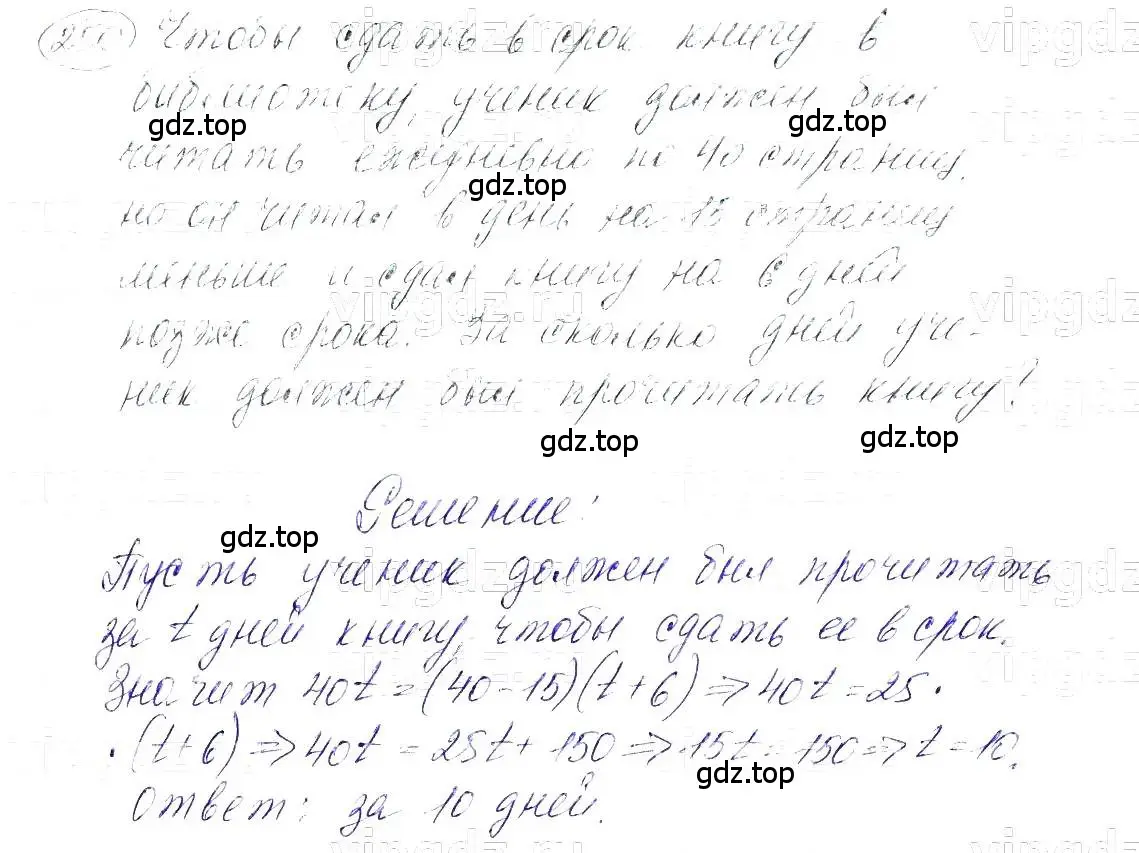 Чтобы сдать в срок книгу в
библиотеку, ученик должен был
gdz.top gdz.top
читать ежедневно по 40 страниц,
gdz.top
но он читал в день на 15 страниц
меньше и сдал книгу на 6 дней
vipgdz.ru vipgdz
позже срока. За сколько дней уче-
ник должен был прочитать книгу?
gdz.top gdz.top
Решение:
gdz.top
Пусть ученик должен был прочитать
за t дней книгу, чтобы сдать ее в срок.
Значит 40t = (40-15)(t+6) => 40t = 25 ·
· (t+6) => 40t = 25t + 150 => 15t = 150 => t = 10.
gdz.top
Ответ: за 10 дней.